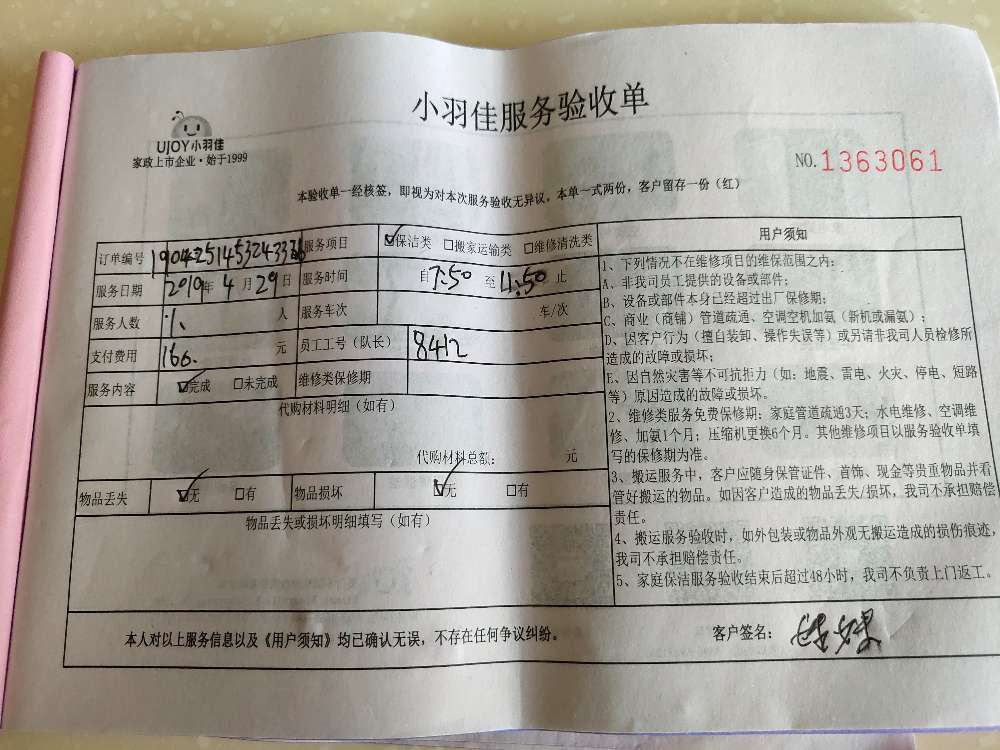 小羽佳服务验收单
UJOY小羽佳
家政上市企业·始于1999
NO.1363061
本验收单一经核签，即视为对本次服务验收无异议。本单一式两份，客户留存一份（红）
订单编号 服务项目 ☑保洁类 □搬家运输类 □维修清洗类
服务日期 2019年 4月 29日 服务时间 自7:50 至 11:50 止
服务人数 人 服务车次 车/次
支付费用 160. 元 员工工号（队长） 8412
服务内容 ☑完成 □未完成 维修类保修期
代购材料明细（如有）
代购材料总额： 元
物品丢失 ☑无 □有 物品损坏 ☑无 □有
物品丢失或损坏明细填写（如有）
用户须知
1、下列情况不在维修项目的维保范围之内：
A、非我司员工提供的设备或部件；
B、设备或部件本身已经超过出厂保修期；
C、商业（商铺）管道疏通、空调空机加氨（新机或漏氨）；
D、因客户行为（擅自装卸、操作失误等）或另请非我司人员检修所
造成的故障或损坏；
E、因自然灾害等不可抗拒力（如：地震、雷电、火灾、停电、短路
等）原因造成的故障或损坏。
2、维修类服务免费保修期：家庭管道疏通3天；水电维修、空调维
修、加氨1个月；压缩机更换6个月。其他维修项目以服务验收单填
写的保修期为准。
3、搬运服务中，客户应随身保管证件、首饰、现金等贵重物品并看
管好搬运的物品。如因客户造成的物品丢失/损坏，我司不承担赔偿
责任。
4、搬运服务验收时，如外包装或物品外观无搬运造成的损伤痕迹，
我司不承担赔偿责任。
5、家庭保洁服务验收结束后超过48小时，我司不负责上门返工。
本人对以上服务信息以及《用户须知》均已确认无误，不存在任何争议纠纷。 客户签名：